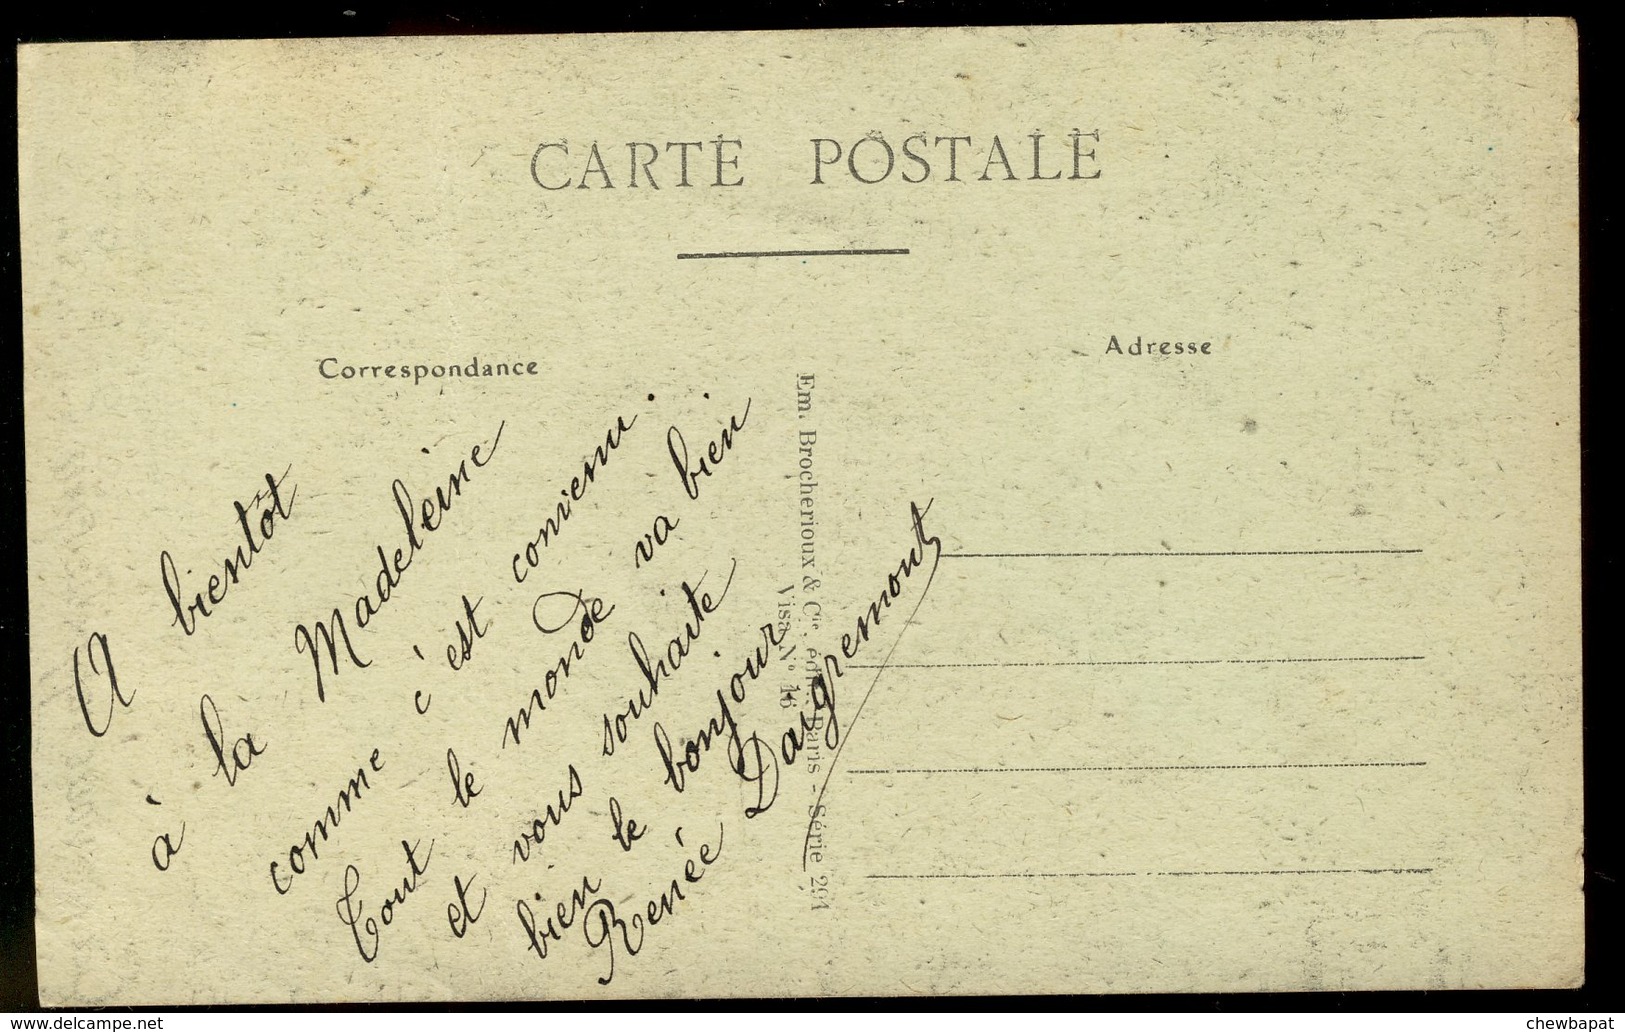 CARTE POSTALE
Correspondance
Adresse
A bientôt
à la Madeleine
comme c'est convenu.
Tout le monde va bien
et vous souhaite
bien le bonjour
Renée Daigremont
Em. Brocherioux & Cie, édit. Paris - Série 291
Visa N° 16
delcampe.net
chewbapat